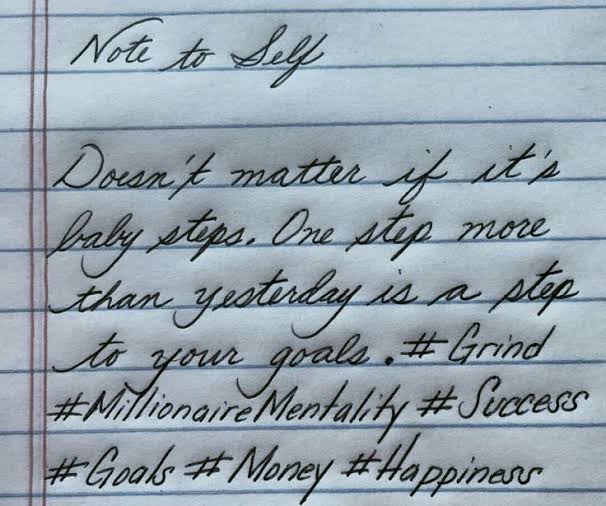 Note to Self
Doesn't matter if it's
baby steps. One step more
than yesterday is a step
to your goals. #Grind
#MillionaireMentality #Success
#Goals #Money #Happiness